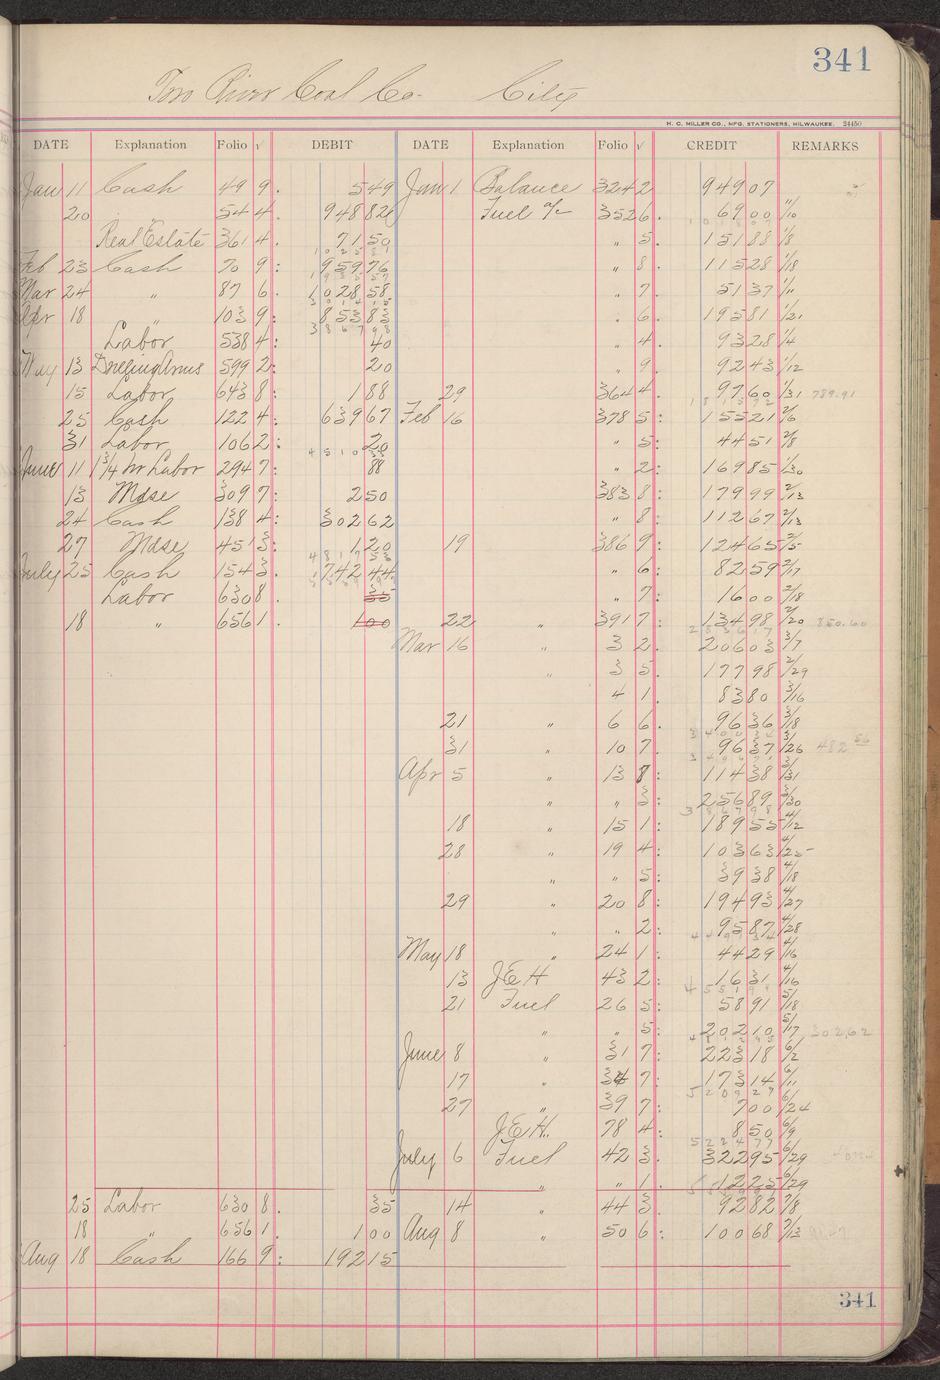 341
Two River Coal Co. City
H. C. MILLER CO., MFG. STATIONERS, MILWAUKEE. 24450
DATE Explanation Folio √ DEBIT DATE Explanation Folio √ CREDIT REMARKS
Jan 11 Cash 49 9. 5 49 Jan 1 Balance 324 2 949 07
20 54 4. 948 82 Fuel a/c 352 6. 69 00 1/10
Real Estate 361 4. 71 50 " 5. 151 88 1/8
Feb 23 Cash 70 9: 959 76 " 8. 115 28 1/18
Mar 24 " 87 6. 1028 58 " 7. 51 37 1/11
Apr 18 " 103 9: 853 83 " 6. 195 81 1/21
Labor 538 4: 40 " 4. 93 28 1/4
May 13 599 2: 20 " 9. 92 43 1/12
15 Labor 643 8: 1 88 29 364 4. 97 60 1/31 789.91
25 Cash 122 4: 639 67 Feb 16 378 5: 155 21 2/6
31 Labor 106 2: 20 " 5: 44 51 2/8
June 11 1 3/4 hr Labor 294 7: 88 " 2: 169 85 1/30
13 Mdse 309 7: 2 50 383 8: 179 99 2/13
24 Cash 138 4: 302 62 " 8: 112 67 2/13
27 Mdse 451 3: 1 20 19 386 9: 124 65 2/5
July 25 Cash 154 3. 742 44 " 6: 82 59 2/17
Labor 630 8. 35 " 7: 16 00 2/18
18 " 656 1. 1 00 22 " 391 7: 134 98 2/20 850.60
Mar 16 " 3 2. 206 03 3/7
" 3 5. 177 98 2/29
4 1. 83 80 3/16
21 " 6 6. 96 36 3/18
31 " 10 7. 96 37 3/26 482 56
Apr 5 " 13 8: 114 38 3/31
" " 3: 256 89 3/30
18 " 15 1: 189 55 4/12
28 " 19 4: 103 63 4/25
" " 5: 39 38 4/18
29 " 20 8: 194 93 4/27
" " 2: 95 87 4/28
May 18 " 24 1: 44 29 4/16
13 J.E.H 43 2: 16 31 4/16
21 Fuel 26 5: 58 91 5/18
" " 5: 202 10 5/17 302.62
June 8 " 31 7: 223 18 6/2
17 " 34 7: 173 14 6/11
27 " 39 7: 7 00 6/24
J.E.H. 78 4: 8 50 6/9
July 6 Fuel 42 3: 322 95 6/29
" " 1. 12 25 6/29
25 Labor 630 8. 35 14 " 44 3. 92 82 7/8
18 " 656 1. 1 00 Aug 8 " 50 6: 100 68 7/13
Aug 18 Cash 166 9: 192 15
341